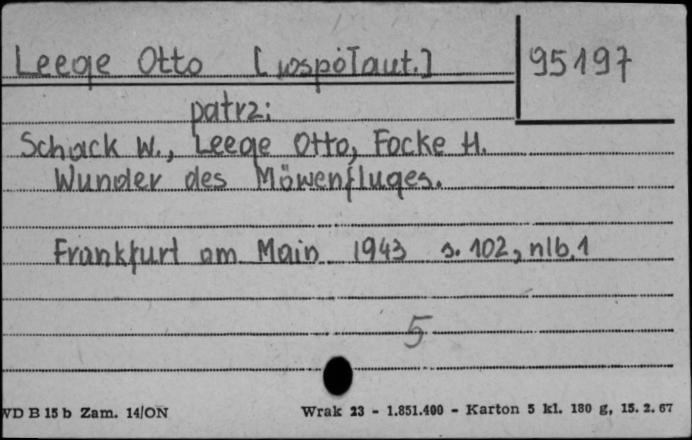 Leege Otto [współaut.] 95197
patrz:
Schack W., Leege Otto, Focke H.
Wunder des Möwenfluges.
Frankfurt am Main 1943 s. 102, nlb. 1
5
WD B 15 b Zam. 14/ON Wrak 23 - 1.851.400 - Karton 5 kl. 180 g, 15. 2. 67